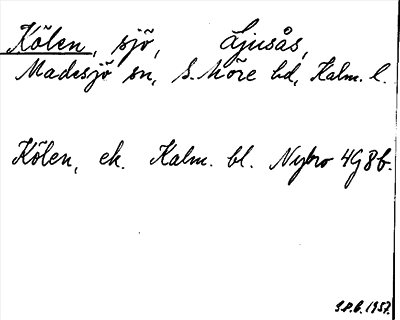 Kölen, sjö, Ljusås,
Madesjö sn, S. Möre hd, Kalm. l.
Kölen, ek. Kalm. bl. Nybro 4G8b.
S.P.B. 1957.